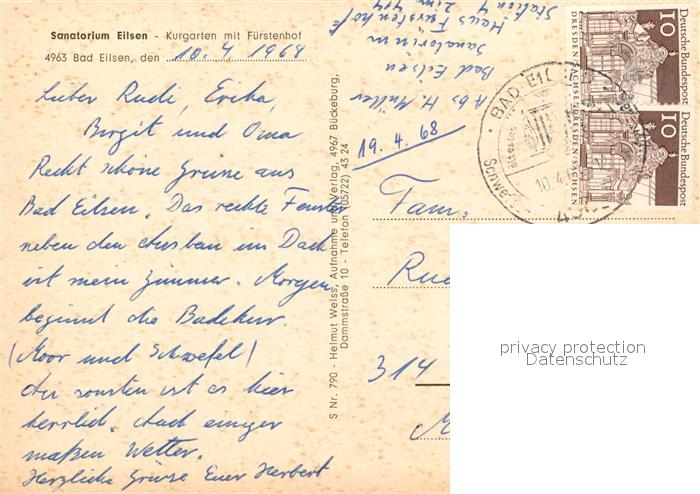 Sanatorium Eilsen - Kurgarten mit Fürstenhof
4963 Bad Eilsen, den 10.4.1968
Lieber Rudi, Erika,
Birgit und Oma
Recht schöne Grüsse aus
Bad Eilsen. Das rechte Fenster
neben den Ausbau im Dach
ist mein Zimmer. Morgen
beginnt die Badekur.
(Moor und Schwefel)
Ansonsten ist es hier
herrlich. Auch einiger
maßen Wetter.
Herzliche Grüsse Euer Herbert
S Nr. 790 - Helmut Weiss, Aufnahme und Verlag, 4967 Bückeburg,
Dammstraße 10 - Telefon (05722) 43 24
Abs H. Müller
Bad Eilsen
Sanatorium
Haus Fürstenhof
Station 4 Zim 414
19.4.68
BAD EILSEN
10.4.6
Deutsche Bundespost
10
DRESDEN SACHSEN
Deutsche Bundespost
10
DRESDEN SACHSEN
Fam.
Rud
314
privacy protection
Datenschutz